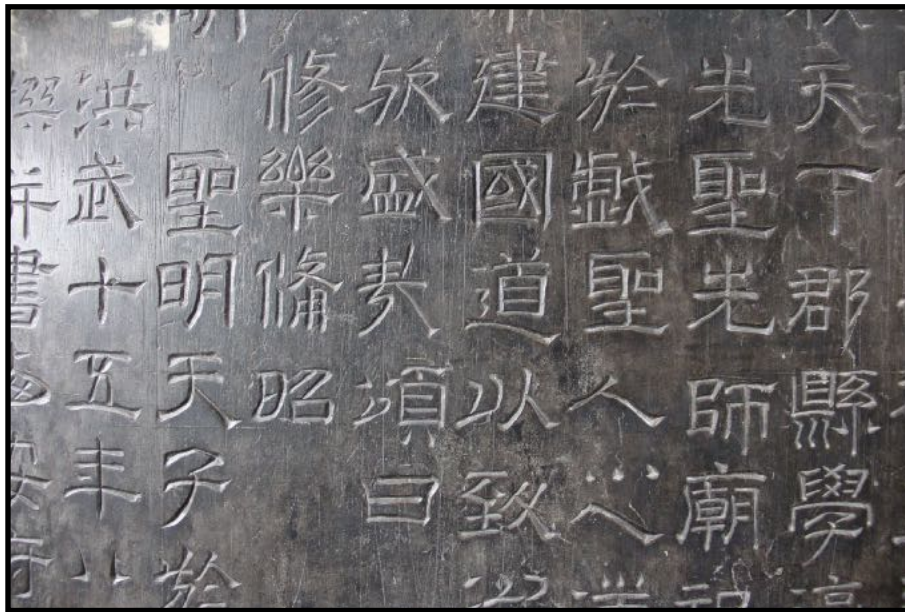 天下郡縣學
先聖先師廟
於戲聖人之
建國道以致治
盛矣頌曰
修樂備昭
聖明天子於
洪武十五年八
撰并書